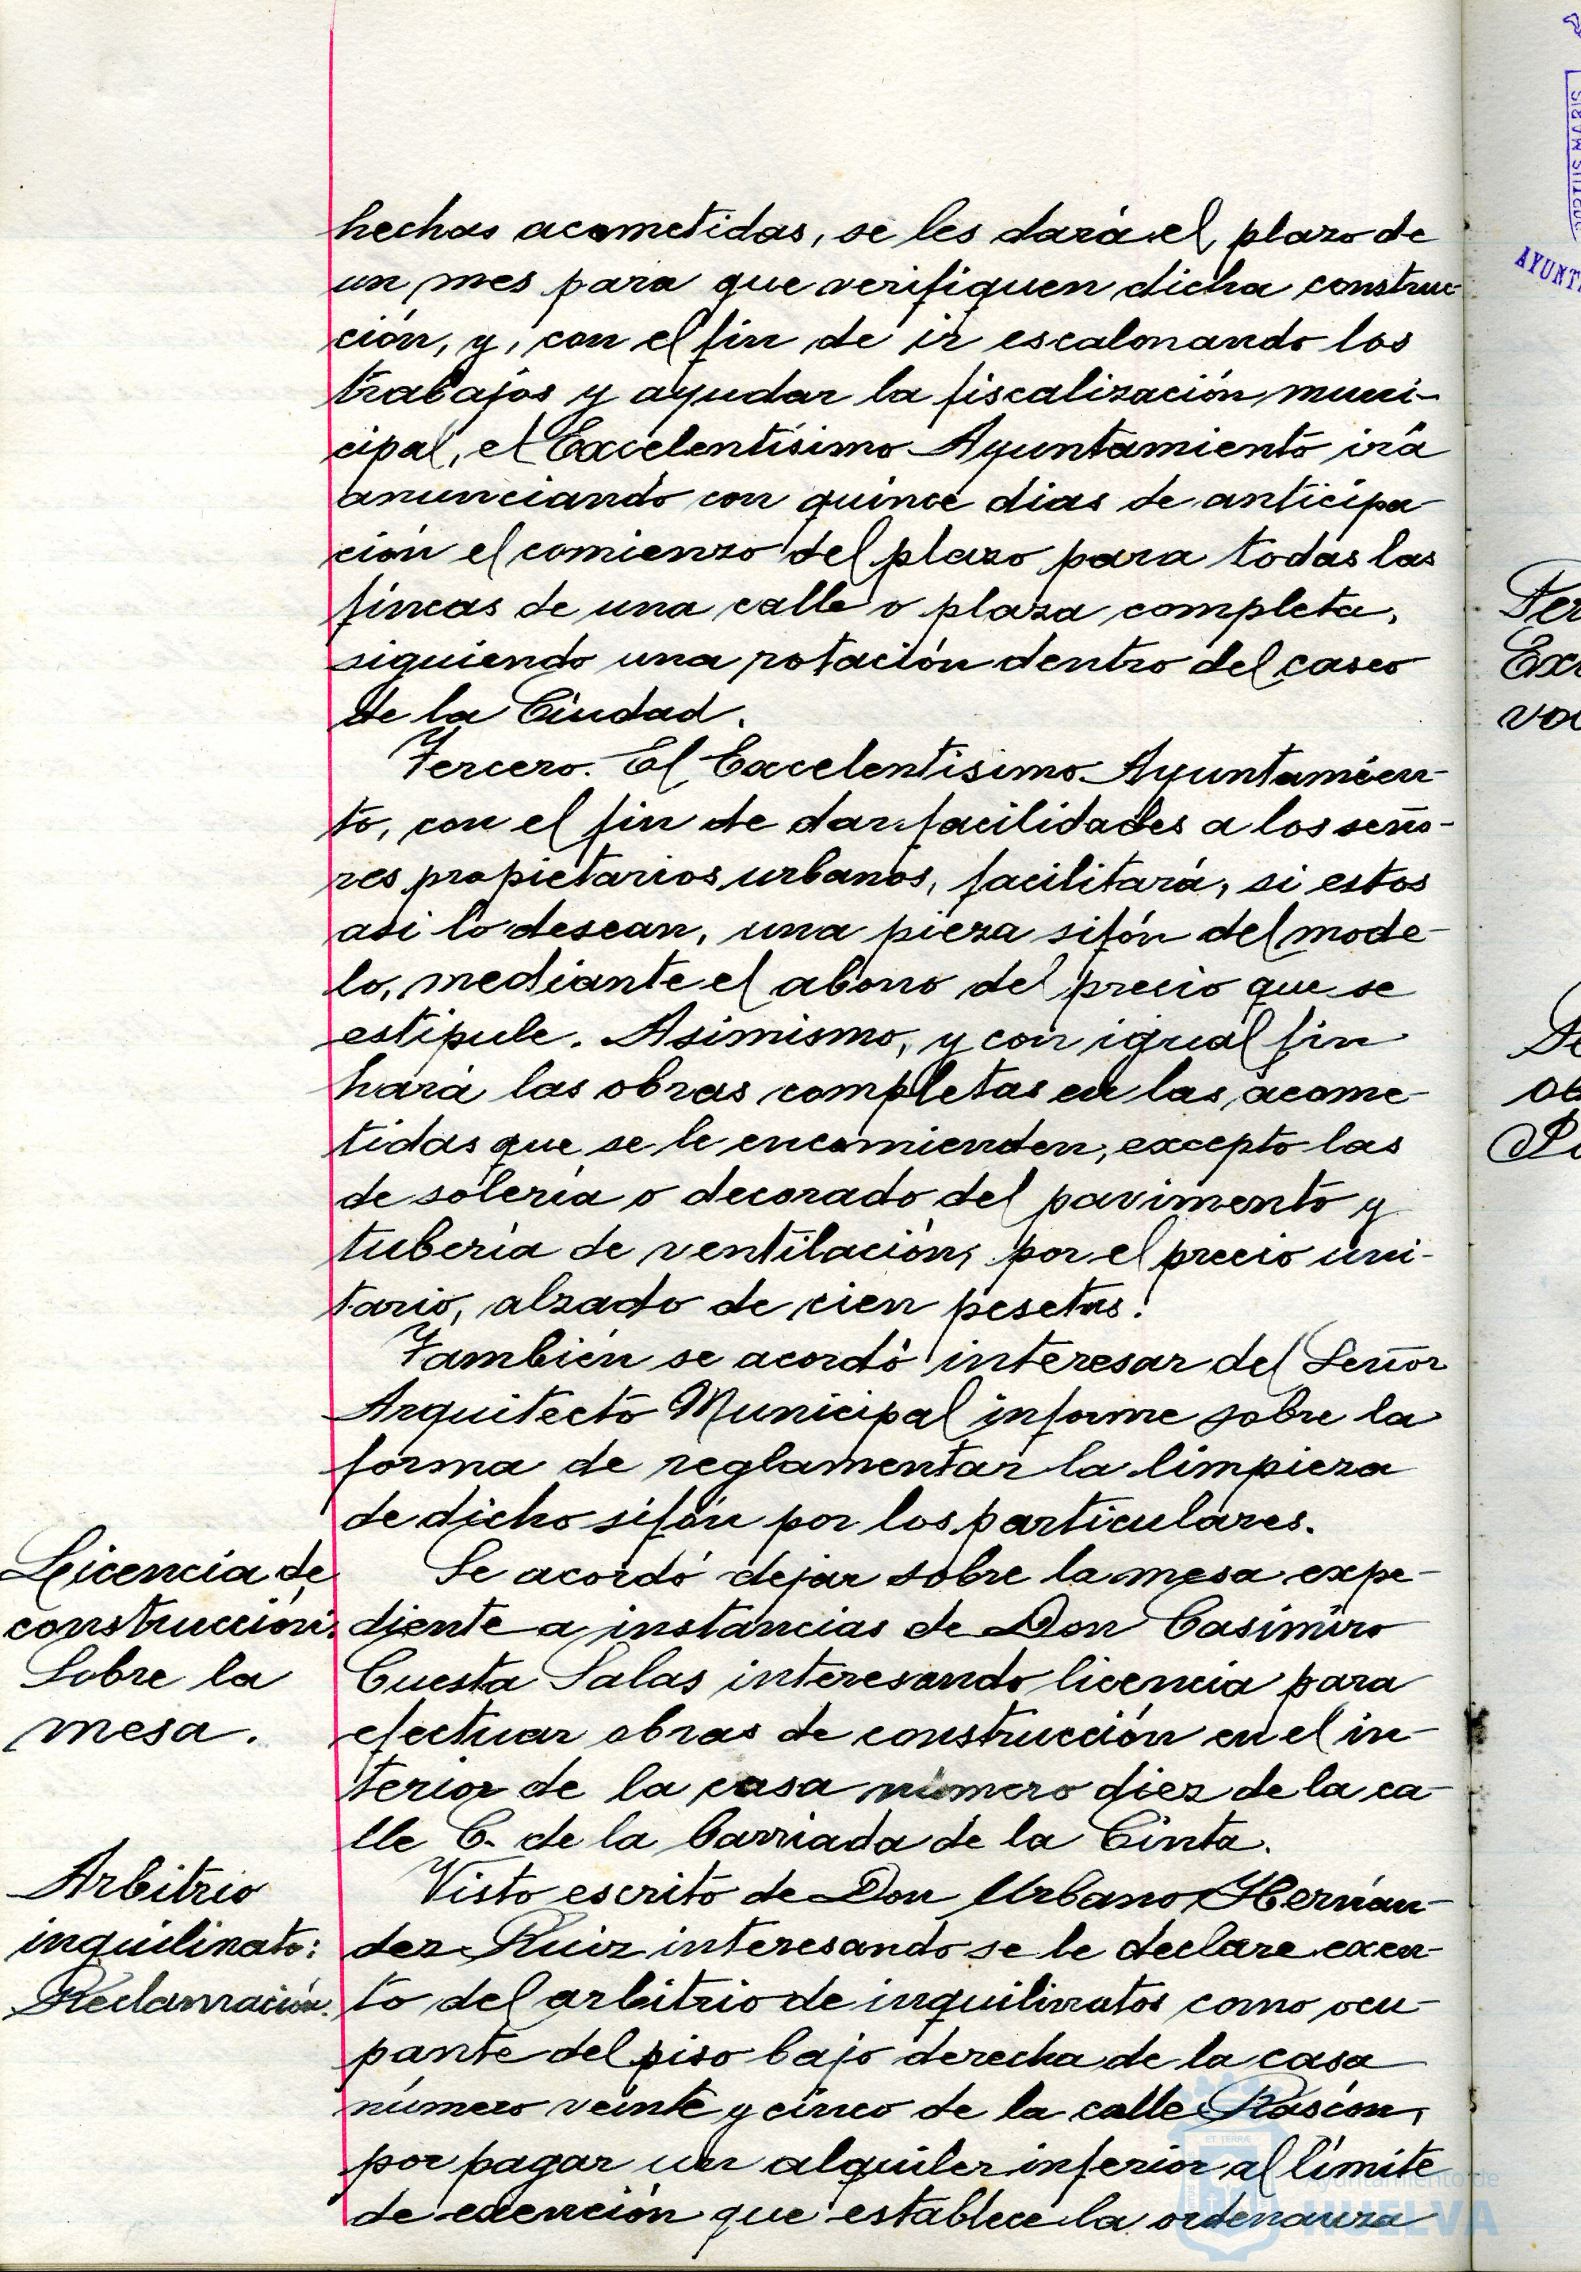 hechas acometidas, se les dará el plazo de
un mes para que verifiquen dicha construc-
ción, y, con el fin de ir escalonando los
trabajos y ayudar la fiscalización muni-
cipal, el Excelentísimo Ayuntamiento irá
anunciando con quince dias de anticipa-
ción el comienzo del plazo para todas las
fincas de una calle o plaza completa,
siguiendo una rotación dentro del casco
de la Ciudad.
Tercero. El Excelentísimo Ayuntamien-
to, con el fin de dar facilidades a los seño-
res propietarios urbanos, facilitará, si estos
asi lo desean, una pieza sifón del mode-
lo, mediante el abono del precio que se
estipule. Asimismo, y con igual fin
hará las obras completas en las acome-
tidas que se le encomienden, excepto las
de solería o decorado del pavimento y
tubería de ventilación, por el precio uni-
tario, alzado de cien pesetas.
También se acordó interesar del Señor
Arquitecto Municipal informe sobre la
forma de reglamentar la limpieza
de dicho sifón por los particulares.
Licencia de
construcción.
Sobre la
mesa.
Se acordó dejar sobre la mesa expe-
diente a instancias de Don Casimiro
Cuesta Salas interesando licencia para
efectuar obras de construcción en el in-
terior de la casa número diez de la ca-
lle C. de la barriada de la Cinta.
Arbitrio
inquilinato:
Reclamación.
Visto escrito de Don Urbano Hernán-
dez Ruiz interesando se le declare exen-
to del arbitrio de inquilinatos como ocu-
pante del piso bajo derecha de la casa
número veinte y cinco de la calle Rascón,
por pagar un alquiler inferior al límite
de exención que establece la ordenanza
Ayuntamiento de
HUELVA
ET TERRÆ
AYUNT
Exc